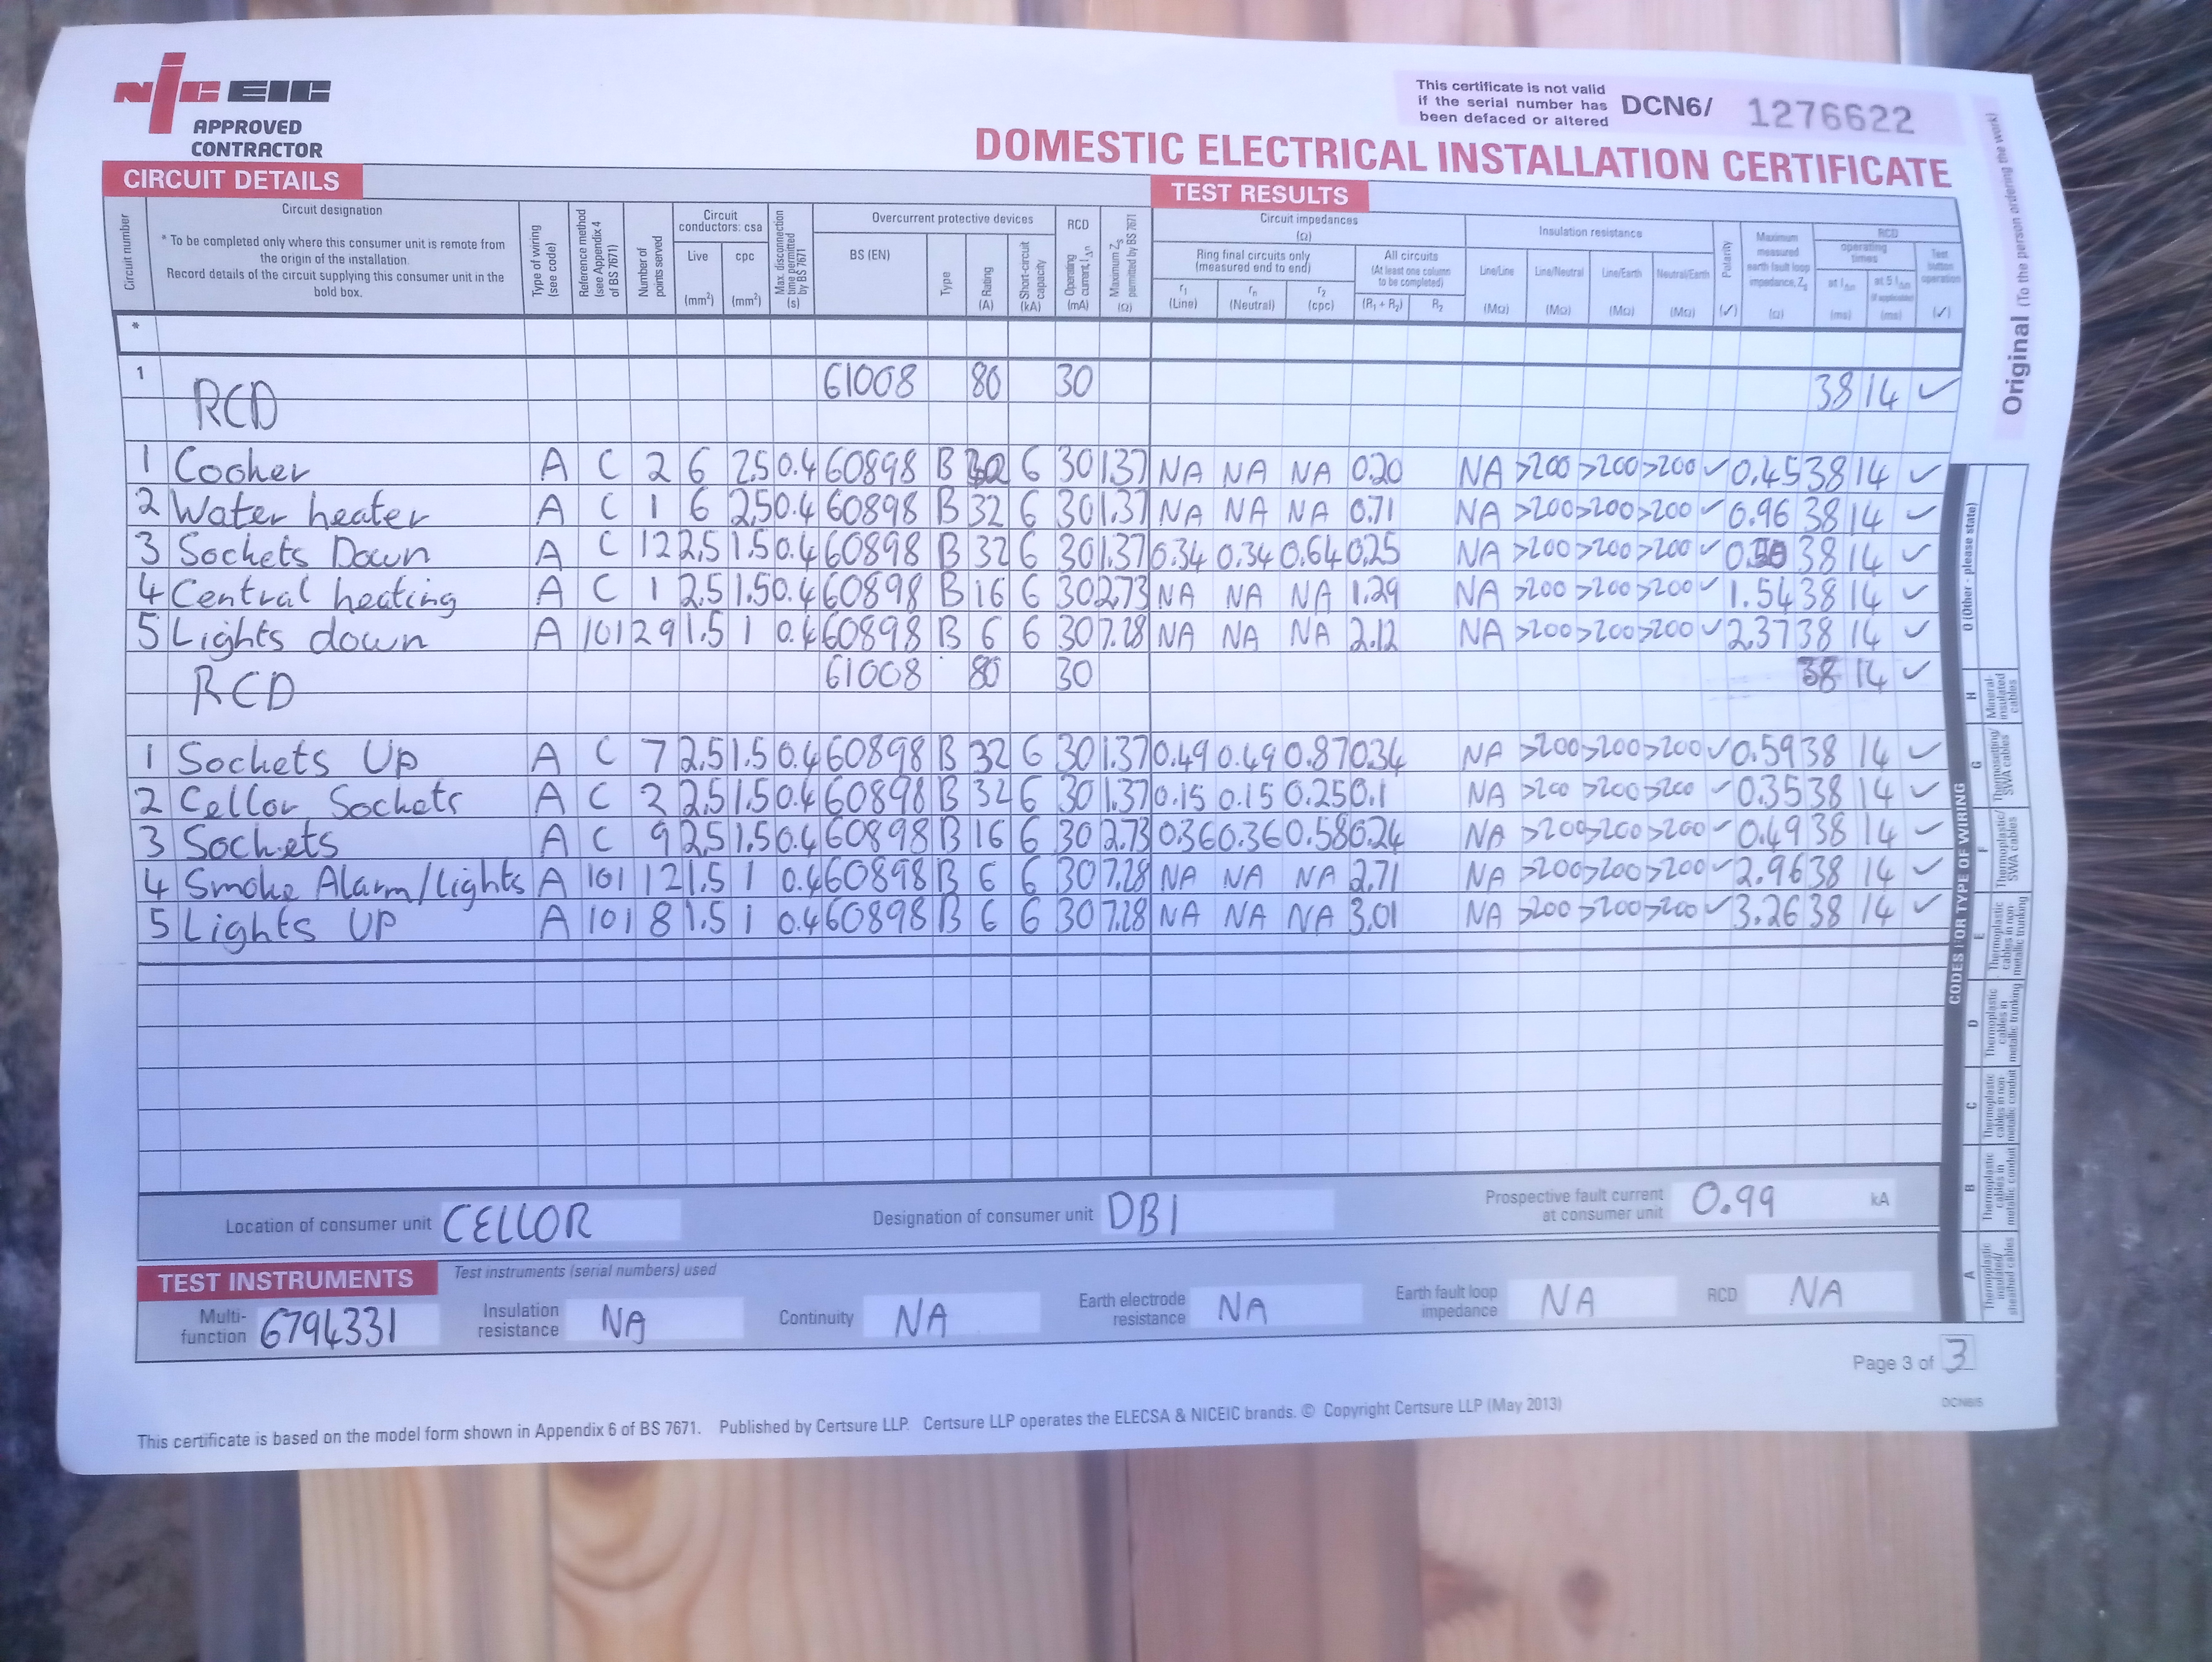 NICEIC
APPROVED
CONTRACTOR
This certificate is not valid
if the serial number has
been defaced or altered
DCN6/ 1276622
DOMESTIC ELECTRICAL INSTALLATION CERTIFICATE
Original (To the person ordering the work)
CIRCUIT DETAILS
TEST RESULTS
Circuit number
Circuit designation
* To be completed only where this consumer unit is remote from
the origin of the installation.
Record details of the circuit supplying this consumer unit in the
bold box.
Type of wiring
(see code)
Reference method
(see Appendix 4
of BS 7671)
Number of
points served
Circuit
conductors: csa
Live
(mm²)
cpc
(mm²)
Max. disconnection
time permitted
by BS 7671
(s)
Overcurrent protective devices
BS (EN)
Type
Rating
(A)
Short-circuit
capacity
(kA)
RCD
Operating
current, IΔn
(mA)
Maximum Zs
permitted by BS 7671
(Ω)
Circuit impedances
(Ω)
Ring final circuits only
(measured end to end)
r1
(Line)
rn
(Neutral)
r2
(cpc)
All circuits
(At least one column
to be completed)
(R1 + R2)
R2
Insulation resistance
Line/Line
(MΩ)
Line/Neutral
(MΩ)
Line/Earth
(MΩ)
Neutral/Earth
(MΩ)
Polarity
(✓)
Maximum
measured
earth fault loop
impedance, Zs
(Ω)
RCD
operating
times
at IΔn
(ms)
at 5 IΔn
(if applicable)
(ms)
Test
button
operation
(✓)
*
1 RCD 61008 80 30 38 14 ✓
1 Cooker A C 2 6 2.5 0.4 60898 B 32 6 30 1.37 NA NA NA 0.20 NA >200 >200 >200 ✓ 0.45 38 14 ✓
2 Water heater A C 1 6 2.5 0.4 60898 B 32 6 30 1.37 NA NA NA 0.71 NA >200 >200 >200 ✓ 0.96 38 14 ✓
3 Sockets Down A C 12 2.5 1.5 0.4 60898 B 32 6 30 1.37 0.34 0.34 0.64 0.25 NA >200 >200 >200 ✓ 38 14 ✓
4 Central heating A C 1 2.5 1.5 0.4 60898 B 16 6 30 2.73 NA NA NA 1.29 NA >200 >200 >200 ✓ 1.54 38 14 ✓
5 Lights down A 101 29 1.5 1 0.4 60898 B 6 6 30 7.28 NA NA NA 2.12 NA >200 >200 >200 ✓ 2.37 38 14 ✓
RCD 61008 80 30 38 14 ✓
1 Sockets Up A C 7 2.5 1.5 0.4 60898 B 32 6 30 1.37 0.49 0.49 0.87 0.34 NA >200 >200 >200 ✓ 0.59 38 14 ✓
2 Cellor Sockets A C 2 2.5 1.5 0.4 60898 B 32 6 30 1.37 0.15 0.15 0.25 0.1 NA >200 >200 >200 ✓ 0.35 38 14 ✓
3 Sockets A C 9 2.5 1.5 0.4 60898 B 16 6 30 2.73 0.36 0.36 0.58 0.24 NA >200 >200 >200 ✓ 0.49 38 14 ✓
4 Smoke Alarm/Lights A 101 12 1.5 1 0.4 60898 B 6 6 30 7.28 NA NA NA 2.71 NA >200 >200 >200 ✓ 2.96 38 14 ✓
5 Lights UP A 101 8 1.5 1 0.4 60898 B 6 6 30 7.28 NA NA NA 3.01 NA >200 >200 >200 ✓ 3.26 38 14 ✓
CODES FOR TYPE OF WIRING
O (Other - please state)
H Mineral-insulated cables
G Thermosetting/SWA cables
F Thermoplastic/SWA cables
E Thermoplastic cables in non metallic trunking
D Thermoplastic cables in metallic trunking
C Thermoplastic cables in non metallic conduit
B Thermoplastic cables in metallic conduit
A Thermoplastic insulated/sheathed cables
Location of consumer unit CELLOR
Designation of consumer unit DB1
Prospective fault current
at consumer unit 0.99 kA
TEST INSTRUMENTS
Test instruments (serial numbers) used
Multi-
function 6794331
Insulation
resistance NA
Continuity NA
Earth electrode
resistance NA
Earth fault loop
impedance NA
RCD NA
Page 3 of 3
This certificate is based on the model form shown in Appendix 6 of BS 7671. Published by Certsure LLP. Certsure LLP operates the ELECSA & NICEIC brands. © Copyright Certsure LLP (May 2013)
DCN6/5